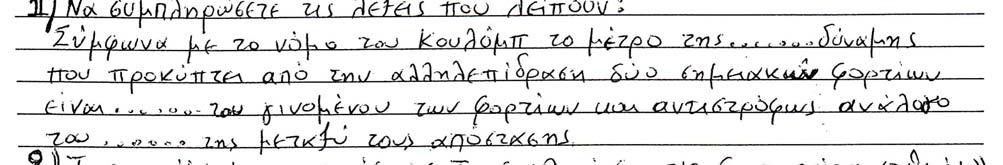 11) Να συμπληρώσετε τις λέξεις που λείπουν:
Σύμφωνα με το νόμο του Κουλόμπ το μέτρο της........δύναμης
που προκύπτει από την αλληλεπίδραση δύο σημειακών φορτίων
είναι........του γινομένου των φορτίων και αντιστρόφως ανάλογο
του........της μεταξύ τους απόστασης.